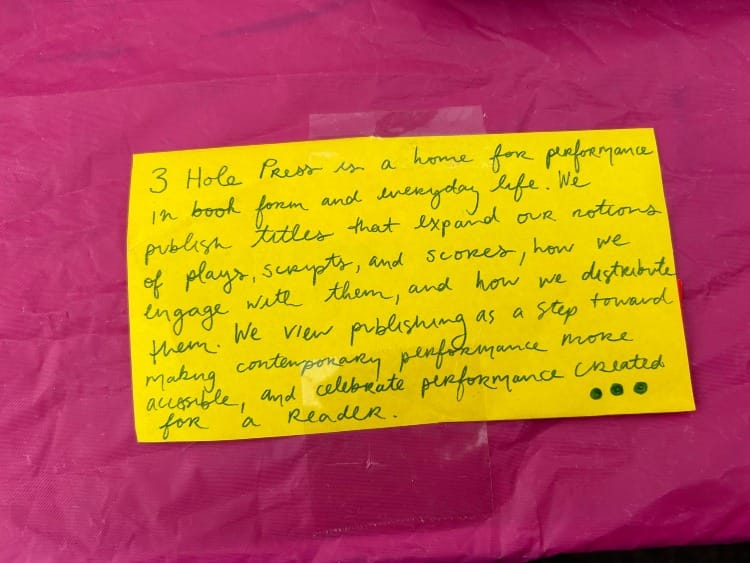 3 Hole Press is a home for performance
in book form and everyday life. We
publish titles that expand our notions
of plays, scripts, and scores, how we
engage with them, and how we distribute
them. We view publishing as a step toward
making contemporary performance more
acessible, and celebrate performance created
for a reader.